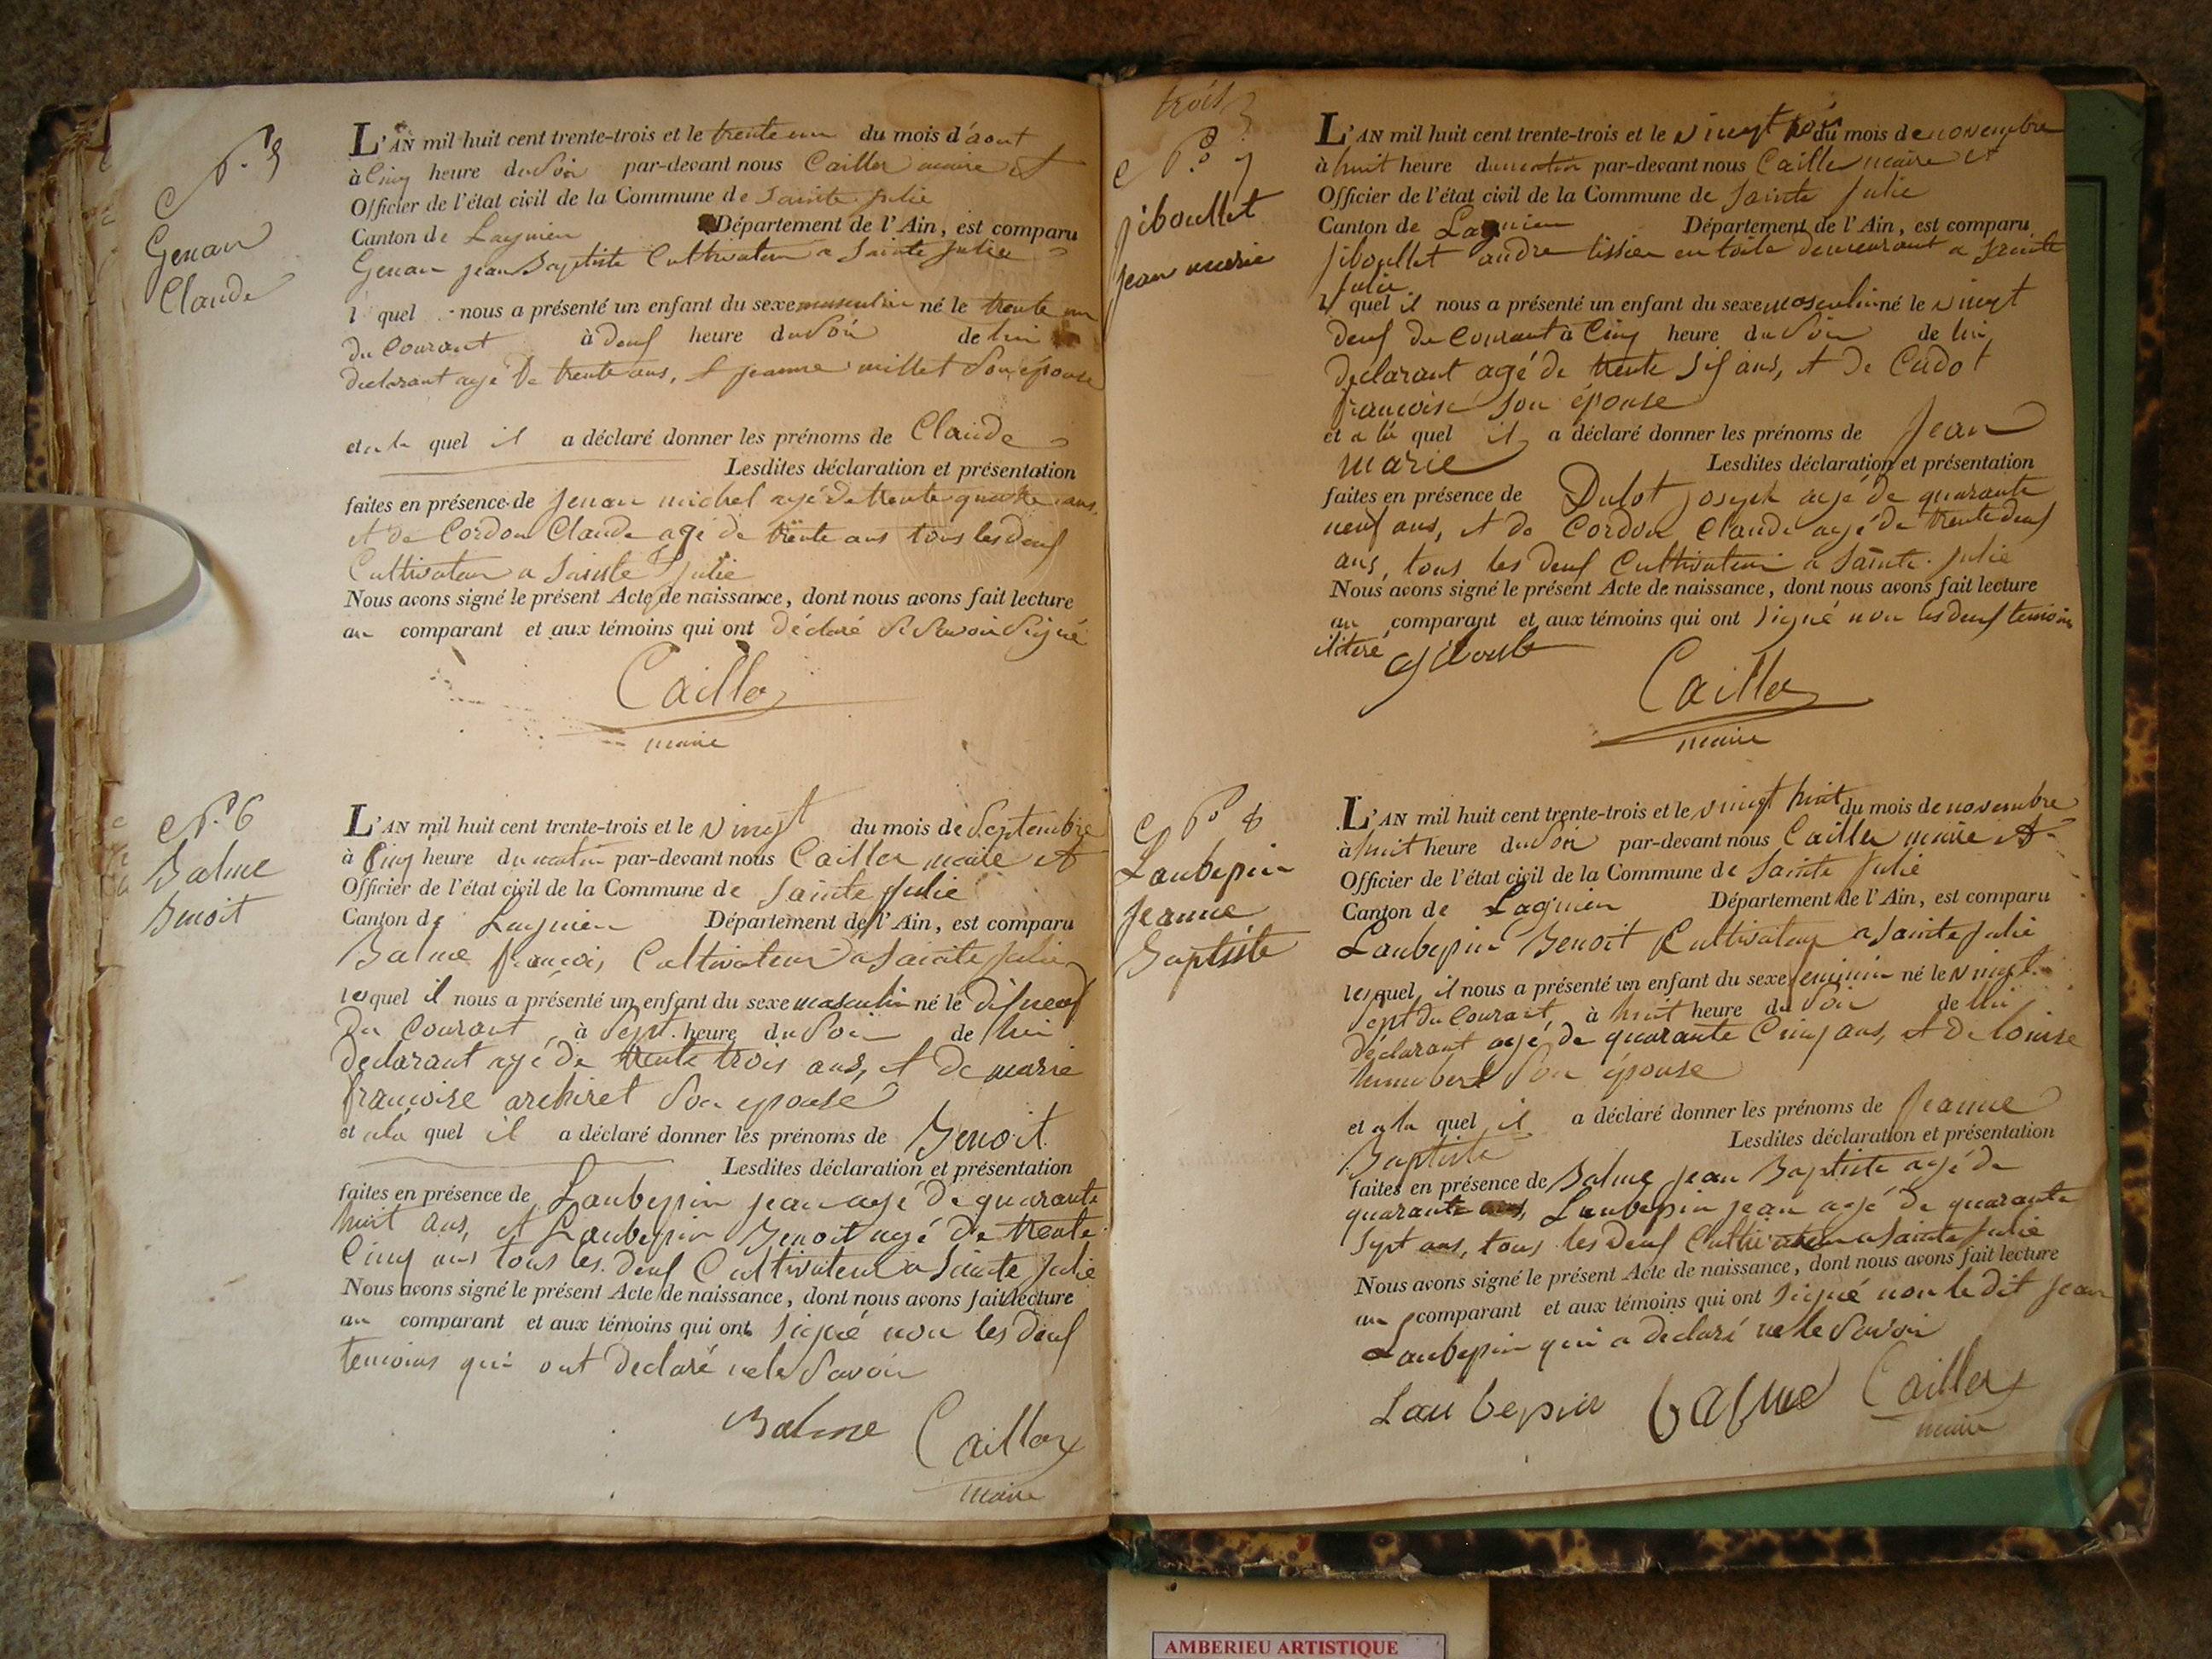 N.° 5
Genan
Claude
L'AN mil huit cent trente-trois et le trente un du mois d'aout
à Cinq heure du Soir par-devant nous Cailler maire et
Officier de l'état civil de la Commune de Sainte Julie
Canton de Lagnieu Département de l'Ain, est comparu
Genan jean Baptiste Cultivateur a Sainte Julie
l quel nous a présenté un enfant du sexe masculin né le trente un
du Courant à deuf heure du Soir de lui
declarant agé de trente ans, et jeanne millet Son épouse
et a la quel il a déclaré donner les prénoms de Claude
Lesdites déclaration et présentation
faites en présence de Jenan michel agé de trente quatre ans
et de Cordon Claude agé de trente ans tous les deuf
Cultivateur a Sainte Julie
Nous avons signé le présent Acte de naissance, dont nous avons fait lecture
au comparant et aux témoins qui ont déclaré Signé
Cailler
maire
N.° 6
Balme
Benoit
L'AN mil huit cent trente-trois et le vingt du mois de Septembre
à Cinq heure du matin par-devant nous Cailler maire et
Officier de l'état civil de la Commune de Sainte Julie
Canton de Lagnieu Département de l'Ain, est comparu
Balme francois Cultivateur a Sainte Julie
lequel il nous a présenté un enfant du sexe masculin né le dif neuf
du Courant à Sept heure du Soir de lui
declarant agé de trente trois ans, et de marie
francoise archiret Son epouse
et a la quel il a déclaré donner les prénoms de Benoit
Lesdites déclaration et présentation
faites en présence de Laubepin jean agé de quarante
huit ans, et Laubepin Benoit agé de trente
Cinq ans tous les deuf Cultivateur a Sainte Julie
Nous avons signé le présent Acte de naissance, dont nous avons fait lecture
au comparant et aux témoins qui ont signé non les deuf
temoins qui ont declaré ne le Savoir
Balme Cailler
maire
trois
N.° 7
jiboullet
jean marie
L'AN mil huit cent trente-trois et le vingt trois du mois de novembre
à huit heure du matin par-devant nous Cailler maire et
Officier de l'état civil de la Commune de Sainte Julie
Canton de Lagnieu Département de l'Ain, est comparu
jiboullet andre tissier en toile demeurant a Sainte
Julie
l quel il nous a présenté un enfant du sexe masculin né le vingt
deuf du Courant à Cinq heure du Soir de lui
declarant agé de trente Sif ans, et de Cadot
francoise Son épouse
et a la quel il a déclaré donner les prénoms de Jean
marie Lesdites déclaration et présentation
faites en présence de Dulot joseph agé de quarante
neuf ans, et de Cordon Claude agé de trente deuf
ans, tous les deuf Cultivateur a Sainte Julie
Nous avons signé le présent Acte de naissance, dont nous avons fait lecture
au comparant et aux témoins qui ont signé non les deuf temoins
iliteré
Cailler
maire
N.° 8
Laubepin
Jeanne
Baptiste
L'AN mil huit cent trente-trois et le vingt huit du mois de novembre
à huit heure du Soir par-devant nous Cailler maire et
Officier de l'état civil de la Commune de Sainte Julie
Canton de Lagnieu Département de l'Ain, est comparu
Laubepin Benoit Cultivateur a Sainte Julie
lequel il nous a présenté un enfant du sexe feminin né le vingt
sept du Courant à huit heure du Soir de lui
déclarant agé de quarante Cinq ans, et de louise
humbert Son épouse
et a la quel il a déclaré donner les prénoms de Jeanne
Baptiste Lesdites déclaration et présentation
faites en présence de Balme jean Baptiste agé de
quarante ans, Laubepin jean agé de quarante
Sept ans, tous les deuf Cultivateur a Sainte Julie
Nous avons signé le présent Acte de naissance, dont nous avons fait lecture
au comparant et aux témoins qui ont signé non le dit jean
Laubepin qui a declaré ne le Savoir
Laubepin balme Cailler
maire
AMBERIEU ARTISTIQUE